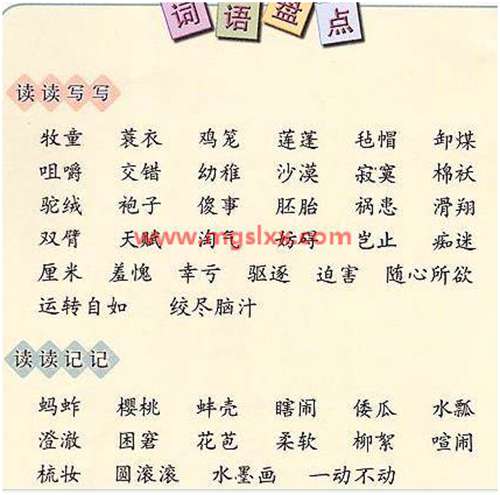 词语盘点
读读写写
牧童 蓑衣 鸡笼 莲蓬 毡帽 卸煤
咀嚼 交错 幼稚 沙漠 寂寞 棉袄
驼绒 袍子 傻事 胚胎 祸患 滑翔
双臂 天赋 淘气 妨碍 岂止 痴迷
www.mgslxx.com
厘米 羞愧 幸亏 驱逐 迫害 随心所欲
运转自如 绞尽脑汁
读读记记
蚂蚱 樱桃 蚌壳 瞎闹 倭瓜 水瓢
澄澈 困窘 花苞 柔软 柳絮 喧闹
梳妆 圆滚滚 水墨画 一动不动